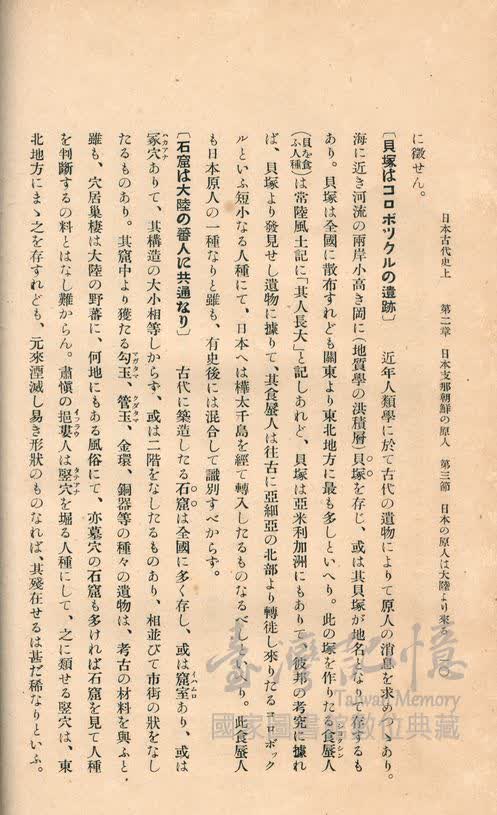 日本古代史上　第二章　日本支那朝鮮の原人　第三節　日本の原人は大陸より來る
に徵せん。
〔貝塚はコロボックルの遺跡〕　近年人類學に於て古代の遺物によりて原人の消息を求め、あり。
海に近き河流の兩岸小高き岡に（地質學の洪積層）貝塚を存じ、或は其貝塚が地名となりて存するも
あり。貝塚は全國に散布すれども關東より東北地方に最も多しといへり。此の塚を作りたる食蜃人
（貝を食ふ人種）は常陸風土記に「其人長大」と記しあれど、貝塚は亞米利加洲にもありて彼邦の考究に據れ
ば、貝塚より發見せし遺物に據りて、其食蜃人は往古に亞細亞の北部より轉徙し來りたるコロボック
ルといふ短小なる人種にて、日本へは樺太千島を經て轉入したるものなるべしといへり。此食蜃人
も日本原人の一種なりと雖も、有史後には混合して識別すべからず。
〔石窟は大陸の蕃人に共通なり〕　古代に築造したる石窟は全國に多く存し、或は窟室あり、或は
冢穴ありて、其構造の大小相等しからず、或は二階をなしたるものあり、相並びて市街の狀をなし
たるものあり。其窟中より獲たる勾玉、管玉、金環、銅器等の種々の遺物は、考古の材料を與ふと
雖も、穴居巢棲は大陸の野蕃に、何地にもある風俗にて、亦墓穴の石窟も多ければ石窟を見て人種
を判斷するの料とはなし難からん。肅愼の挹婁人は竪穴を堀る人種にして、之に類せる竪穴は、東
北地方にまゝ之を存すれども、元來湮滅し易き形狀のものなれば、其殘在せるは甚だ稀なりといふ。
臺灣記憶
Taiwan Memory
國家圖書館數位典藏